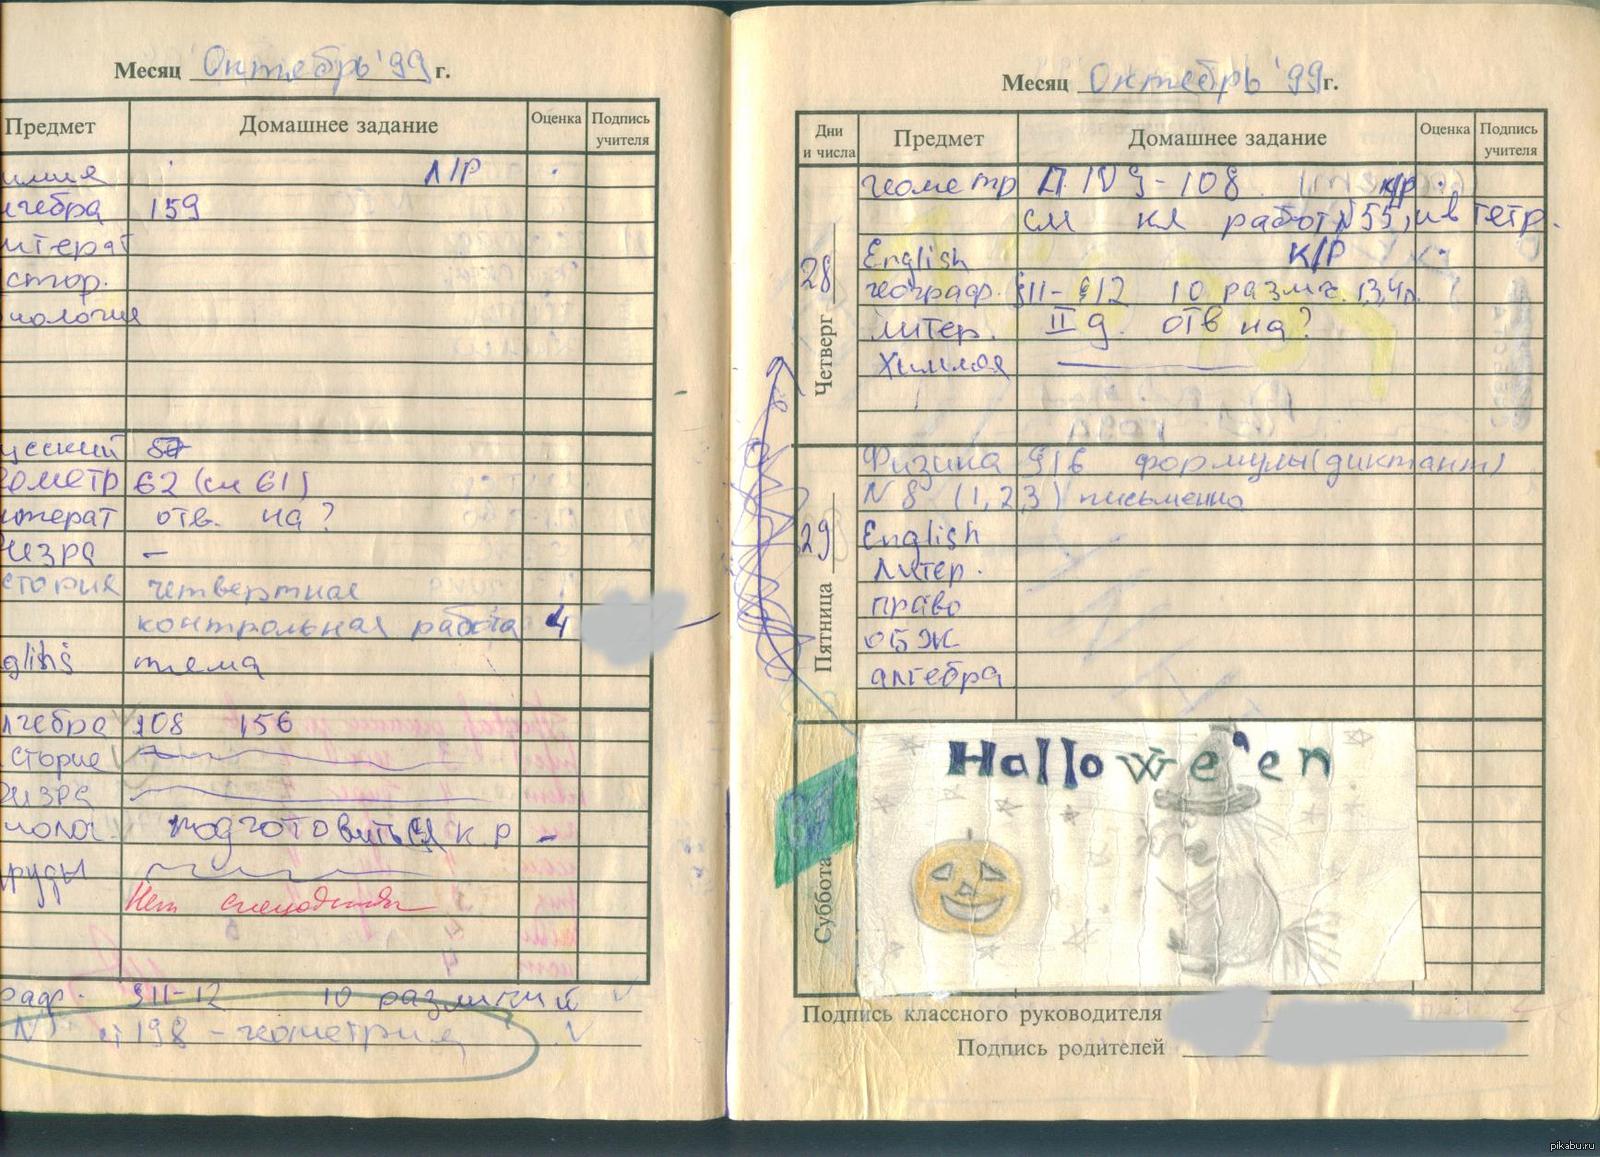 Месяц Октябрь '99 г.
Предмет Домашнее задание Оценка Подпись учителя
имия Л/Р
лгебра 159
итерат
стор.
иология
усский
еометр 62 (см 61)
итерат отв. на?
физра –
стория четвертная
контрольная работа 4
glish тема
лгебра 208 156
стория
физра
иолог подготовиться к.р –
руды
Нет
граф. §11-12 10 различий
N ст 198 - геометрия
Месяц Октябрь '99 г.
Дни и числа Предмет Домашнее задание Оценка Подпись учителя
Четверг 28
геометр П. 109-108 к/р
см кл работ №55, и в тетр.
English К/Р
географ. §11-§12 10 разл.
литер. II д. отв на?
Химия
Пятница 29
Физика §16 формулы (диктант)
N 8 (1,2,3) письменно
English
литер.
право
ОБЖ
алгебра
Суббота
Hallowe'en
Подпись классного руководителя
Подпись родителей
pikabu.ru